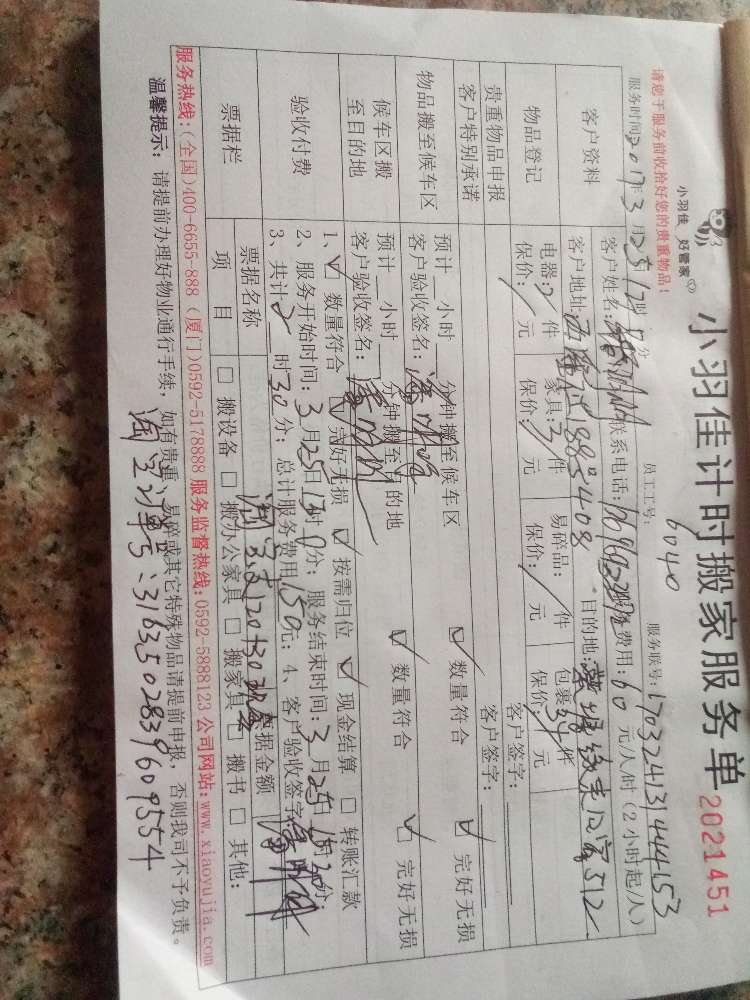 小羽佳 好管家
小羽佳计时搬家服务单 2021451
请您于服务前收拾好您的贵重物品!
员工工号: 6040 服务联号: 170324131444153
服务时间2017年3月25日12时 分
客户资料 客户姓名: 联系电话: 服务费用:60元/人/时(2小时起/人)
客户地址: 188号408 目的地: 512
物品登记 电器:2件 家具:3件 易碎品:/件 包裹 件
保价:/元 保价: 元 保价:/元 保价: 元
贵重物品申报
客户特别承诺 客户签字:
客户签字:
物品搬至候车区 预计 小时 分钟搬至候车区 ☑ 数量符合 ☑ 完好无损
客户验收签名:
候车区搬至目的地 预计 小时 分钟搬至目的地 ☑ 数量符合 ☑ 完好无损
客户验收签名:
验收付费 1、☑ 数量符合 ☑ 完好无损 ☑ 按需归位 ☑ 现金结算 □ 转账汇款
2、服务开始时间:3月25日13时0分; 服务结束时间:3月25日15时30分;
3、共计2时30分; 总计服务费用150元; 4、客户验收签字:
票据栏 票据名称 淘宝支120+30现金 票据金额
项 目 □ 搬设备 □ 搬办公家具 □ 搬家具 □ 搬书 □ 其他:
服务热线:(全国)400-6655-888 (厦门)0592-5178888 服务监督热线:0592-5888123 公司网站:www.xiaoyujia.com
温馨提示: 请提前办理好物业通行手续, 如有贵重、易碎或其它特殊物品请提前申报, 否则我司不予负责。
淘宝订单号:3163502839609554